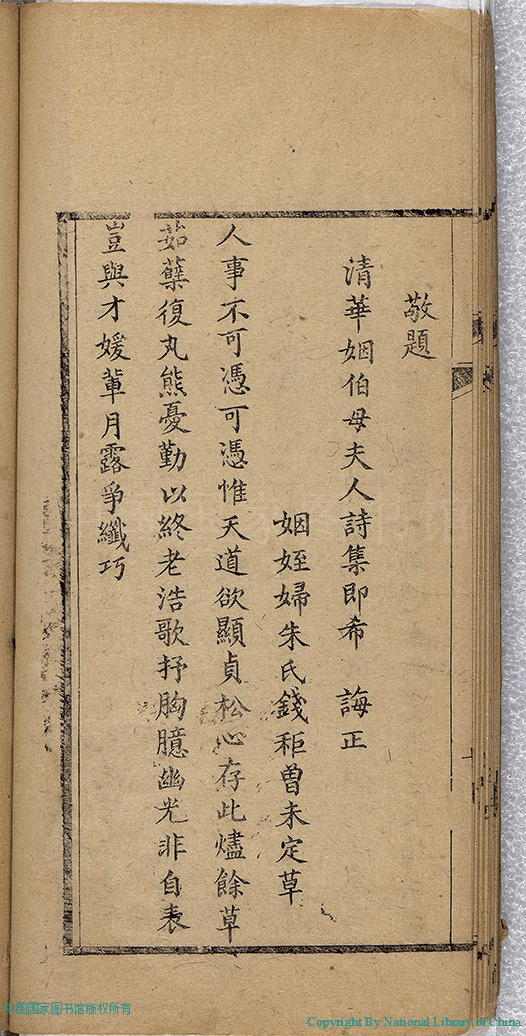 敬題
清華姻伯母夫人詩集即希　誨正
姻姪婦朱氏錢秬曾未定草
人事不可憑可憑惟天道欲顯貞松心存此燼餘草
茹蘗復丸熊憂勤以終老浩歌抒胸臆幽光非自表
豈與才媛輩月露爭纖巧
中国国家图书馆版权所有
Copyright By National Library of China